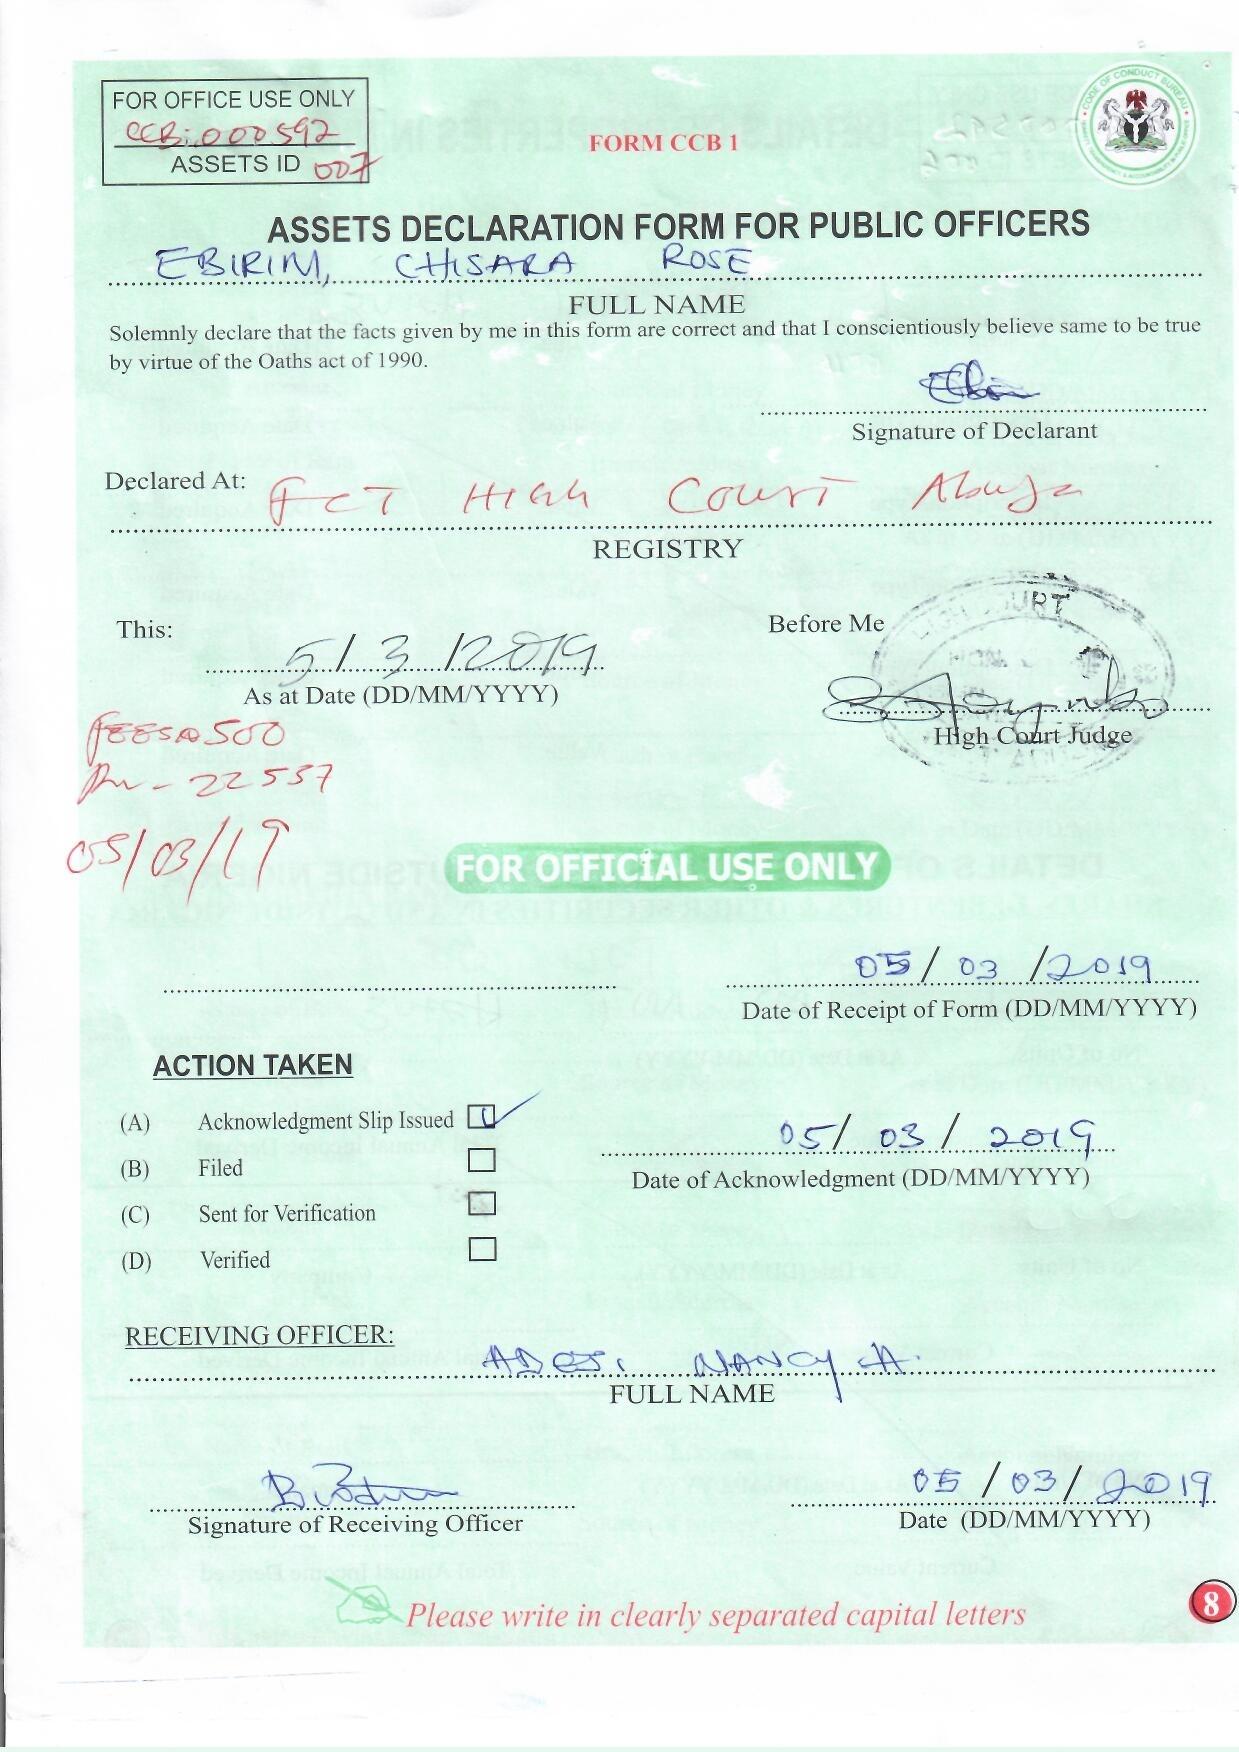 FOR OFFICE USE ONLY
CCB:000592
ASSETS ID 007
FORM CCB 1
CODE OF CONDUCT BUREAU
ASSETS DECLARATION FORM FOR PUBLIC OFFICERS
EBIRIM, CHISARA ROSE
FULL NAME
Solemnly declare that the facts given by me in this form are correct and that I conscientiously believe same to be true
by virtue of the Oaths act of 1990.
Signature of Declarant
Declared At: FCT HIGH COURT Abuja
REGISTRY
This: 5/3/2019
As at Date (DD/MM/YYYY)
Before Me
High Court Judge
500
22537
05/03/19
FOR OFFICIAL USE ONLY
05/03/2019
Date of Receipt of Form (DD/MM/YYYY)
ACTION TAKEN
(A) Acknowledgment Slip Issued
(B) Filed
(C) Sent for Verification
(D) Verified
05/03/2019
Date of Acknowledgment (DD/MM/YYYY)
RECEIVING OFFICER:
NANCY A.
FULL NAME
Signature of Receiving Officer
05/03/2019
Date (DD/MM/YYYY)
Please write in clearly separated capital letters
8